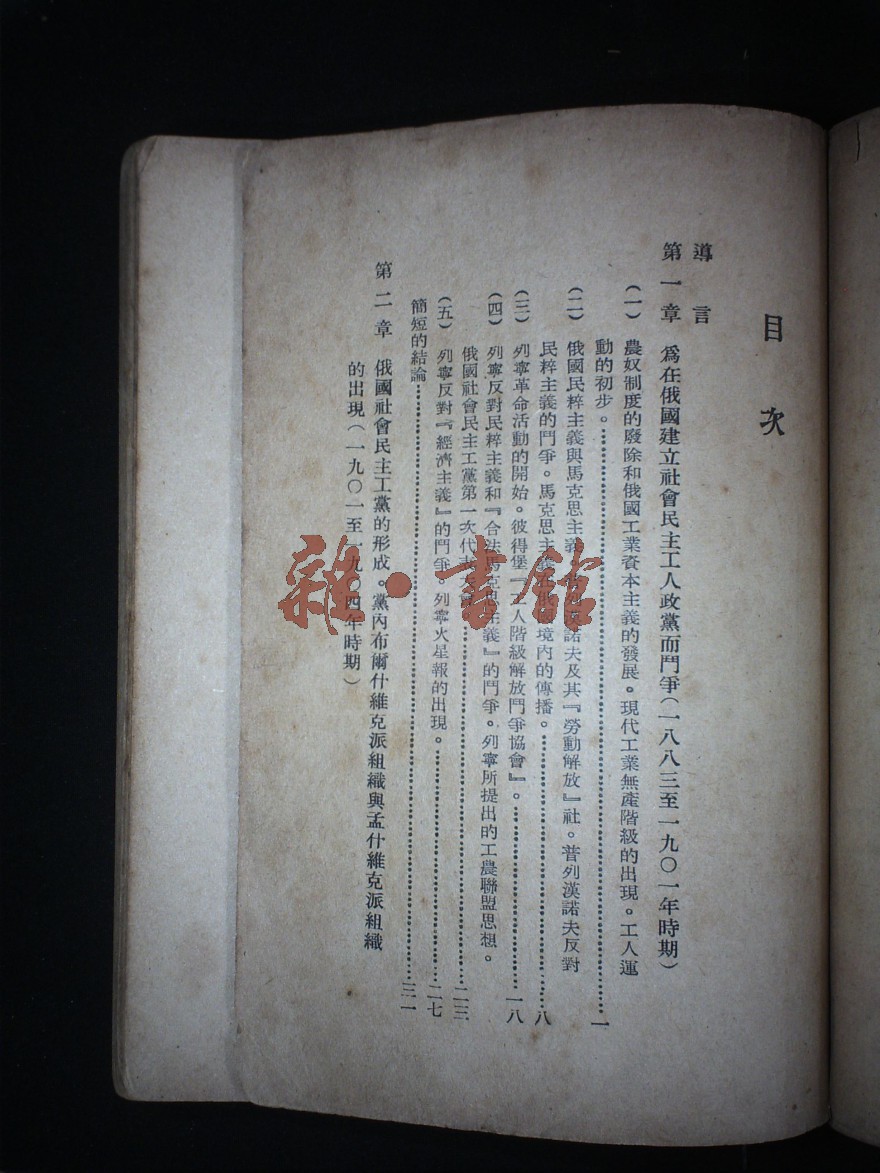 目次
導言
第一章 爲在俄國建立社會民主工人政黨而鬥爭(一八八三至一九〇一年時期)
(一) 農奴制度的廢除和俄國工業資本主義的發展。現代工業無產階級的出現。工人運
動的初步。……一
(二) 俄國民粹主義與馬克思主義 諾夫及其『勞動解放』社。普列漢諾夫反對
民粹主義的鬥爭。馬克思主義 境內的傳播。……八
(三) 列寧革命活動的開始。彼得堡『工人階級解放鬥爭協會』。……一八
(四) 列寧反對民粹主義和『合法馬克思主義』的鬥爭。列寧所提出的工農聯盟思想。
俄國社會民主工黨第一次代表大會……二三
(五) 列寧反對『經濟主義』的鬥爭。列寧火星報的出現。……二七
簡短的結論……三一
第二章 俄國社會民主工黨的形成。黨內布爾什維克派組織與孟什維克派組織
的出現(一九〇一至一九〇四年時期)
雜·書館